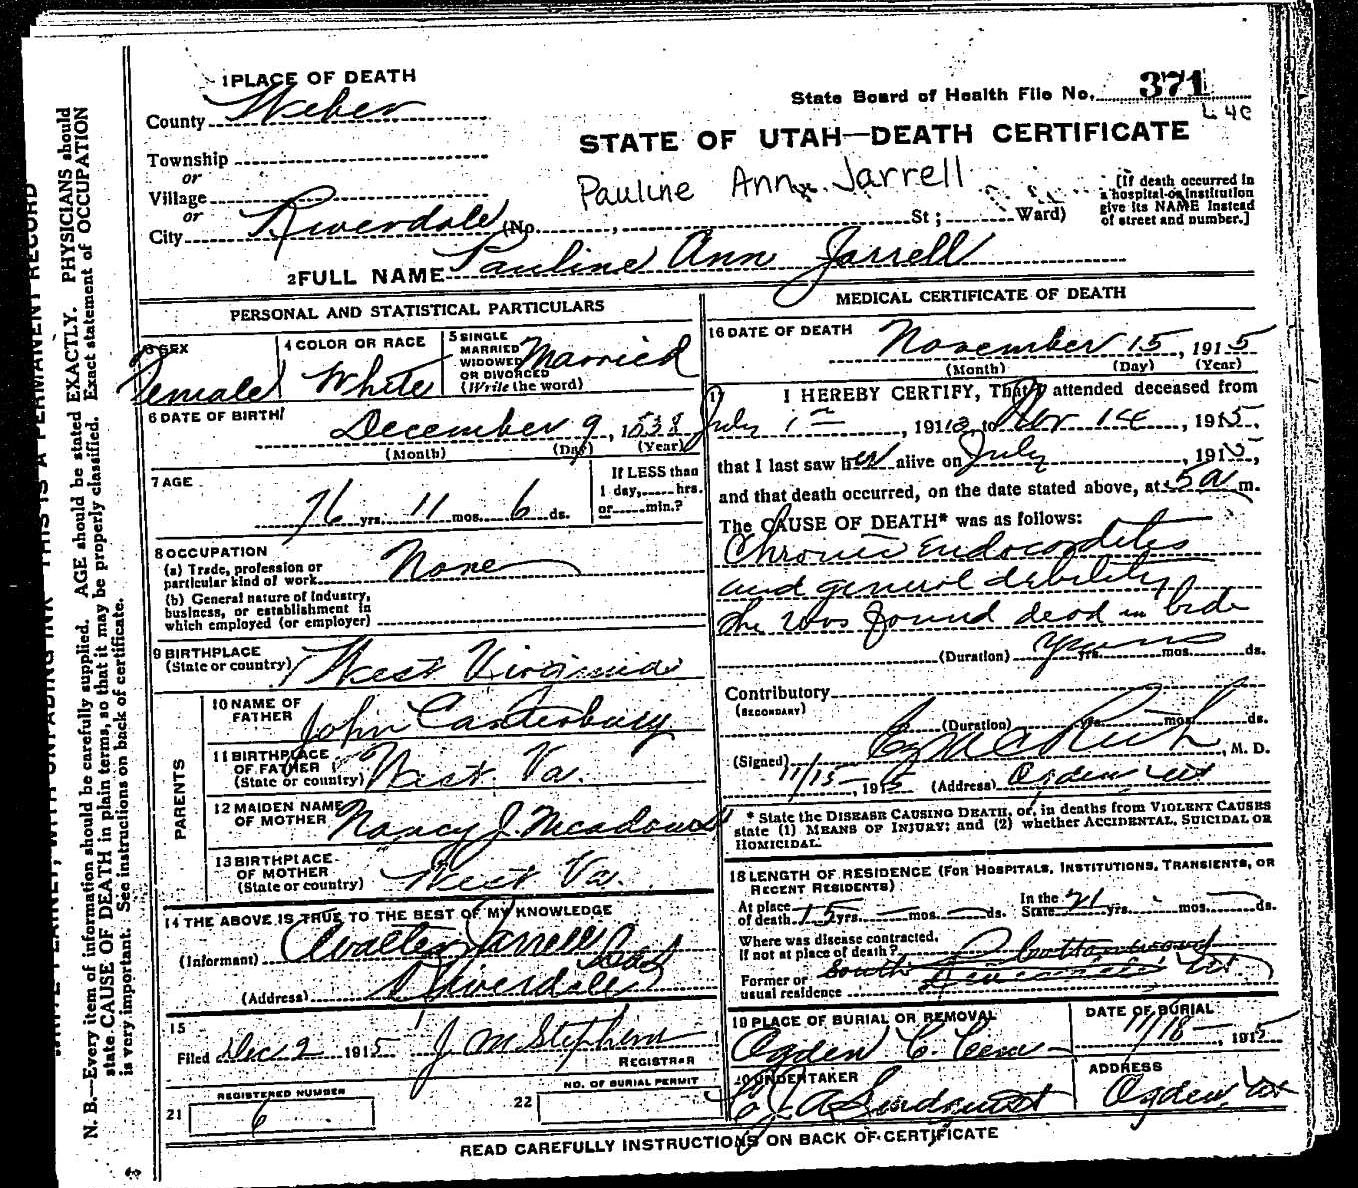 1 PLACE OF DEATH
County Weber
State Board of Health File No. 371
STATE OF UTAH—DEATH CERTIFICATE
Township
or
Village
or
City Riverdale (No. , St; Ward)
Pauline Ann Jarrell
[If death occurred in
a hospital or institution
give its NAME instead
of street and number.]
2 FULL NAME Pauline Ann Jarrell
PERSONAL AND STATISTICAL PARTICULARS
3 SEX
Female
4 COLOR OR RACE
White
5 SINGLE
MARRIED
WIDOWED
OR DIVORCED
(Write the word)
Married
6 DATE OF BIRTH
December 9, 1838
(Month) (Day) (Year)
7 AGE
76 yrs. 11 mos. 6 ds.
If LESS than
1 day, hrs.
or min.?
8 OCCUPATION
(a) Trade, profession or
particular kind of work None
(b) General nature of Industry,
business, or establishment in
which employed (or employer)
9 BIRTHPLACE
(State or country) West Virginia
PARENTS
10 NAME OF
FATHER John Canterbury
11 BIRTHPLACE
OF FATHER
(State or country) West. Va.
12 MAIDEN NAME
OF MOTHER Nancy J. Meadows
13 BIRTHPLACE
OF MOTHER
(State or country) West Va.
14 THE ABOVE IS TRUE TO THE BEST OF MY KNOWLEDGE
(Informant) Walter Jarrell
(Address) Riverdale
15
Filed Dec 2 1915 J. M. Stephens
REGISTRAR
REGISTERED NUMBER
21 6
NO. OF BURIAL PERMIT
22
MEDICAL CERTIFICATE OF DEATH
16 DATE OF DEATH
November 15, 1915
(Month) (Day) (Year)
17 I HEREBY CERTIFY, That I attended deceased from
July 1st, 1913, to Nov 14, 1915,
that I last saw her alive on July, 1915,
and that death occurred, on the date stated above, at 5 a m.
The CAUSE OF DEATH* was as follows:
Chronic Endocarditis
and general debility
She was found dead in bed
(Duration) years yrs. mos. ds.
Contributory
(SECONDARY)
(Duration) yrs. mos. ds.
(Signed) M. D.
11/15, 1915 (Address) Ogden Ut
* State the DISEASE CAUSING DEATH, or, in deaths from VIOLENT CAUSES
state (1) MEANS OF INJURY; and (2) whether ACCIDENTAL, SUICIDAL OR
HOMICIDAL.
18 LENGTH OF RESIDENCE (FOR HOSPITALS, INSTITUTIONS, TRANSIENTS, OR
RECENT RESIDENTS)
At place
of death 15 yrs. mos. ds.
In the
State 21 yrs. mos. ds.
Where was disease contracted,
if not at place of death?
Former or
usual residence
19 PLACE OF BURIAL OR REMOVAL
Ogden C. Cem
DATE OF BURIAL
11/18, 1915
20 UNDERTAKER
Lindquist
ADDRESS
Ogden, Ut
READ CAREFULLY INSTRUCTIONS ON BACK OF CERTIFICATE
N. B.—Every item of information should be carefully supplied. AGE should be stated EXACTLY. PHYSICIANS should
state CAUSE OF DEATH in plain terms, so that it may be properly classified. Exact statement of OCCUPATION
is very important. See instructions on back of certificate.